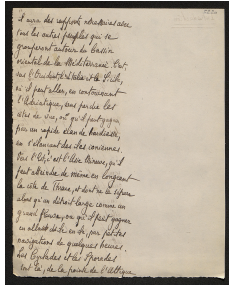 Il aura des rapports nécessaires avec
tous les autres peuples qui se
grouperont autour du bassin
oriental de la Méditerranée. C'est
vers l'Occident, l'Italie et la Sicile,
où il peut aller, en contournant
l'Adriatique, sans perdre les
côtes de vue, où qu'il peut gagner
par un rapide élan de hardiesse,
en s'élançant des îles ioniennes.
Vers l'Est, c'est l'Asie Mineure, qu'il
peut atteindre de même en longeant
la côte de Thrace, et dont ne le sépare
alors qu'un détroit large comme un
grand fleuve, ou qu'il peut gagner
en allant d'île en île, par petites
navigations de quelques heures.
Les Cyclades et les Sporades
sont là, de la pointe de l'Attique